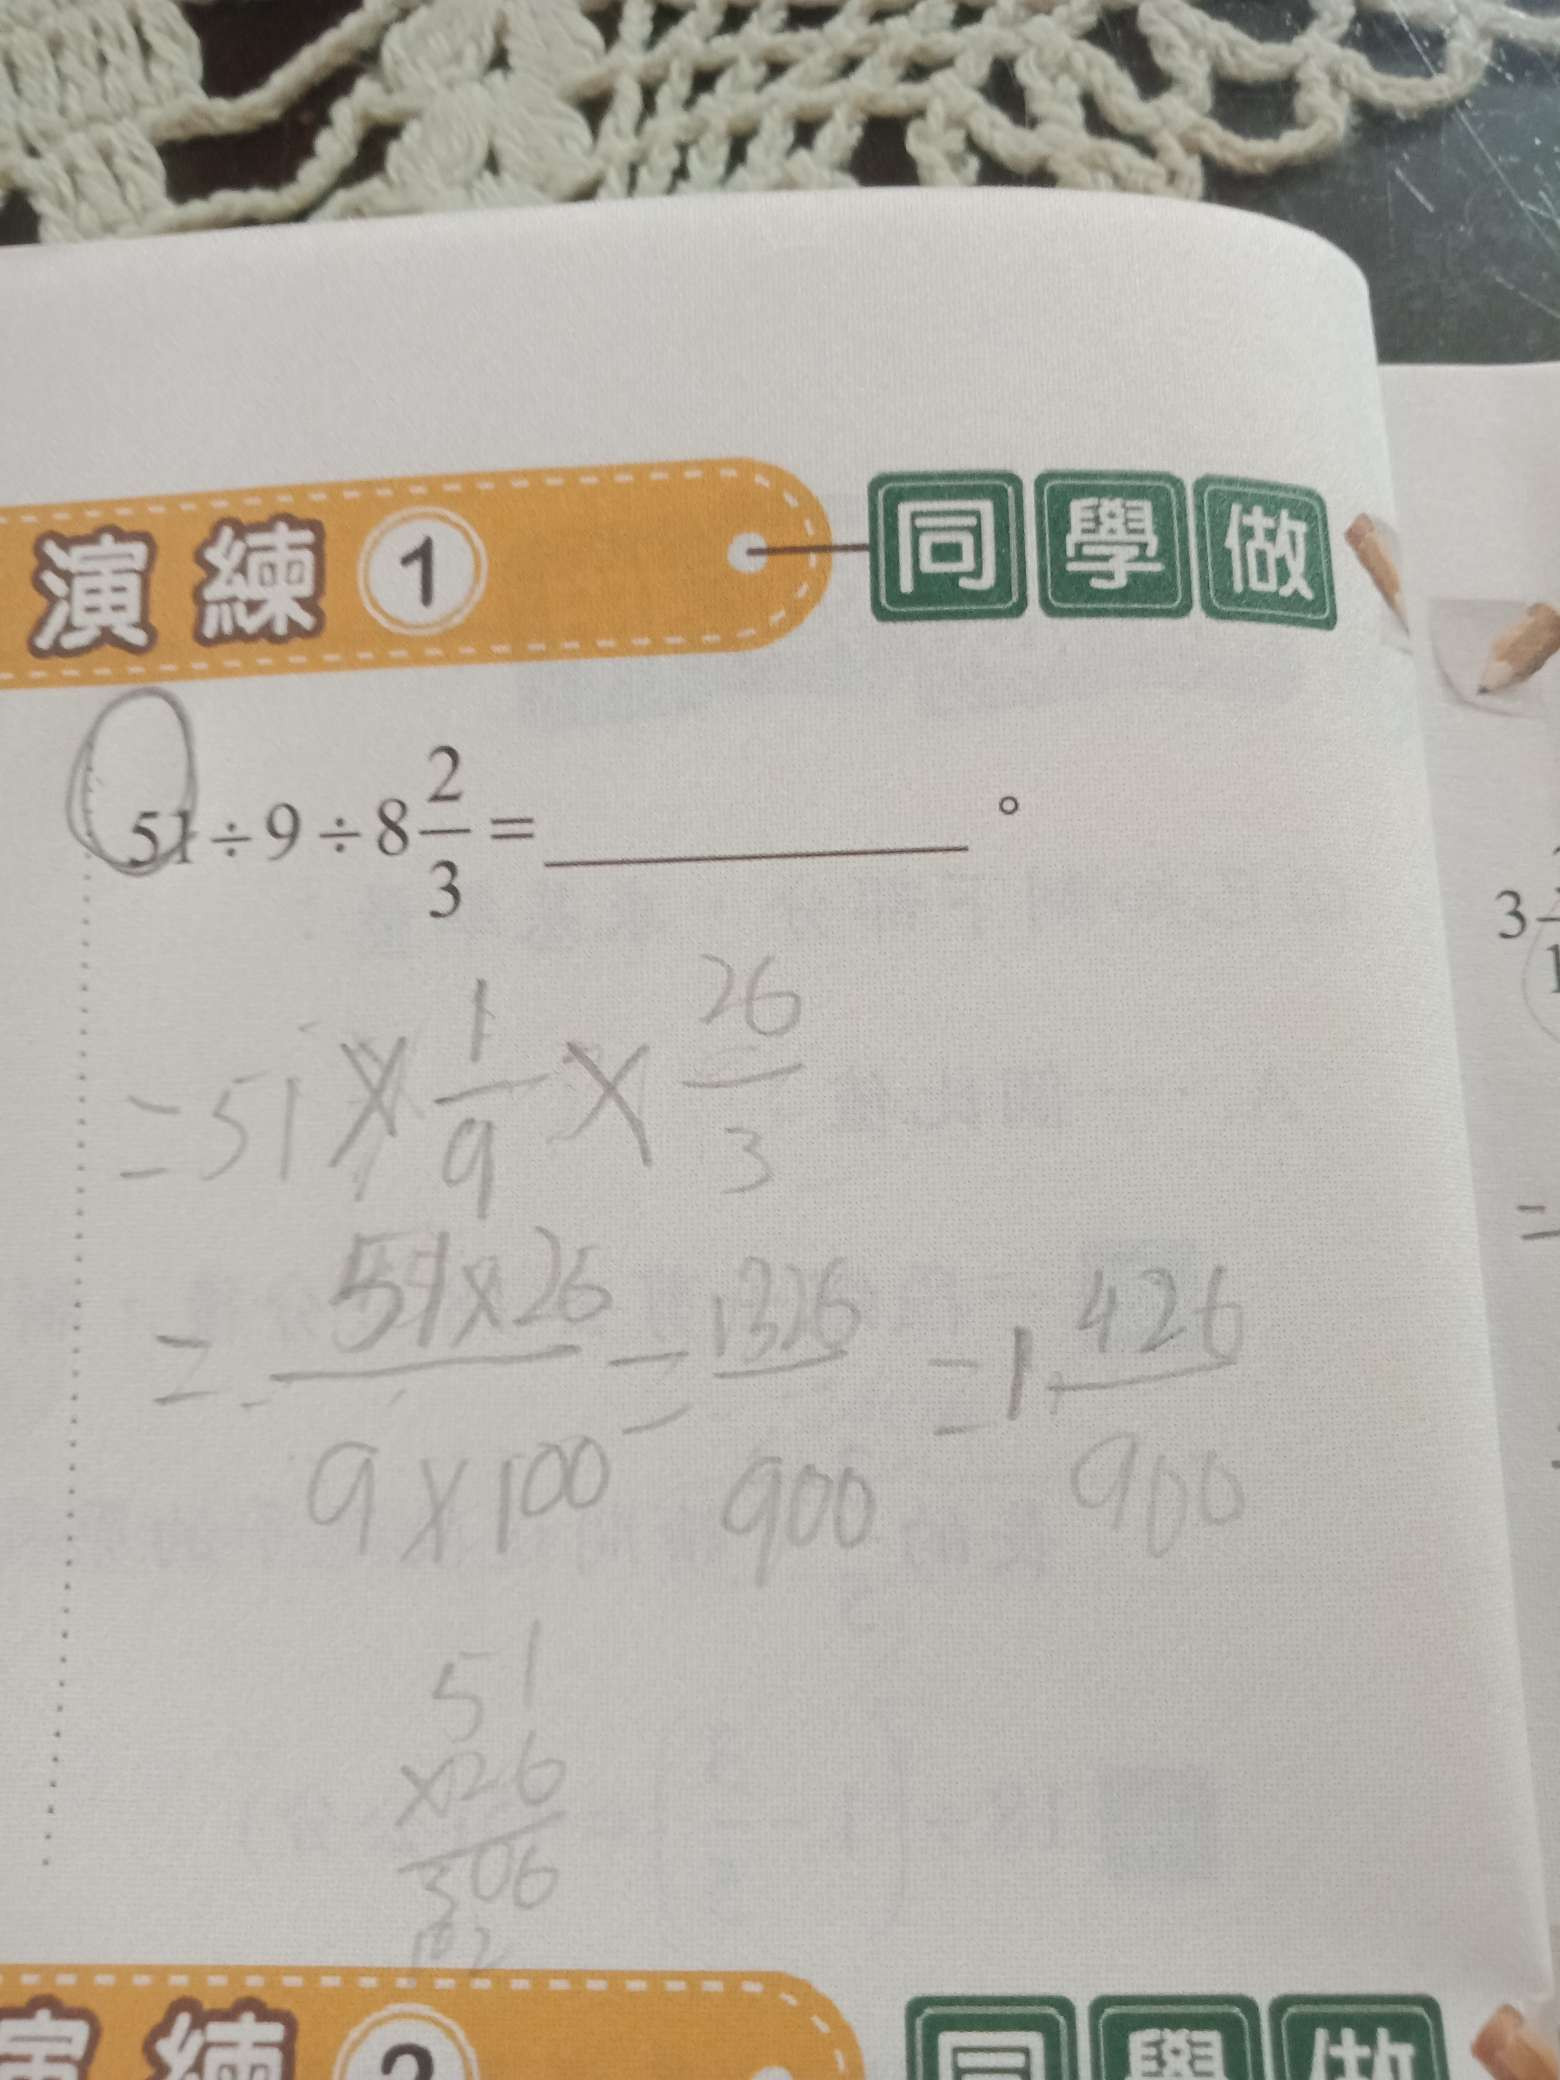 演練 1 同學做
51÷9÷8 2/3=______。
=51×1/9×26/3
=51×26/9×100=1326/900=1 426/900
51
×26
306
102
演練 2 同學做
3
1
=